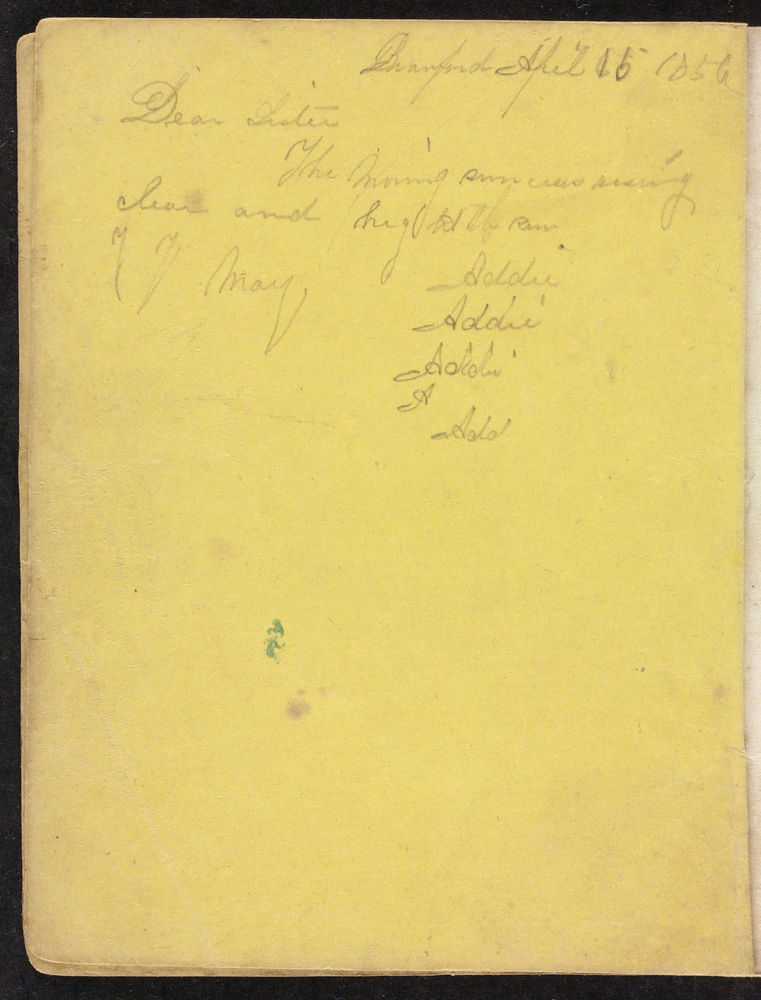 Branford April 15 1856
Dear Sister
The Moring sun was rising
clear and bright the sun
T T May
Addie
Addie
Addie
A
Add